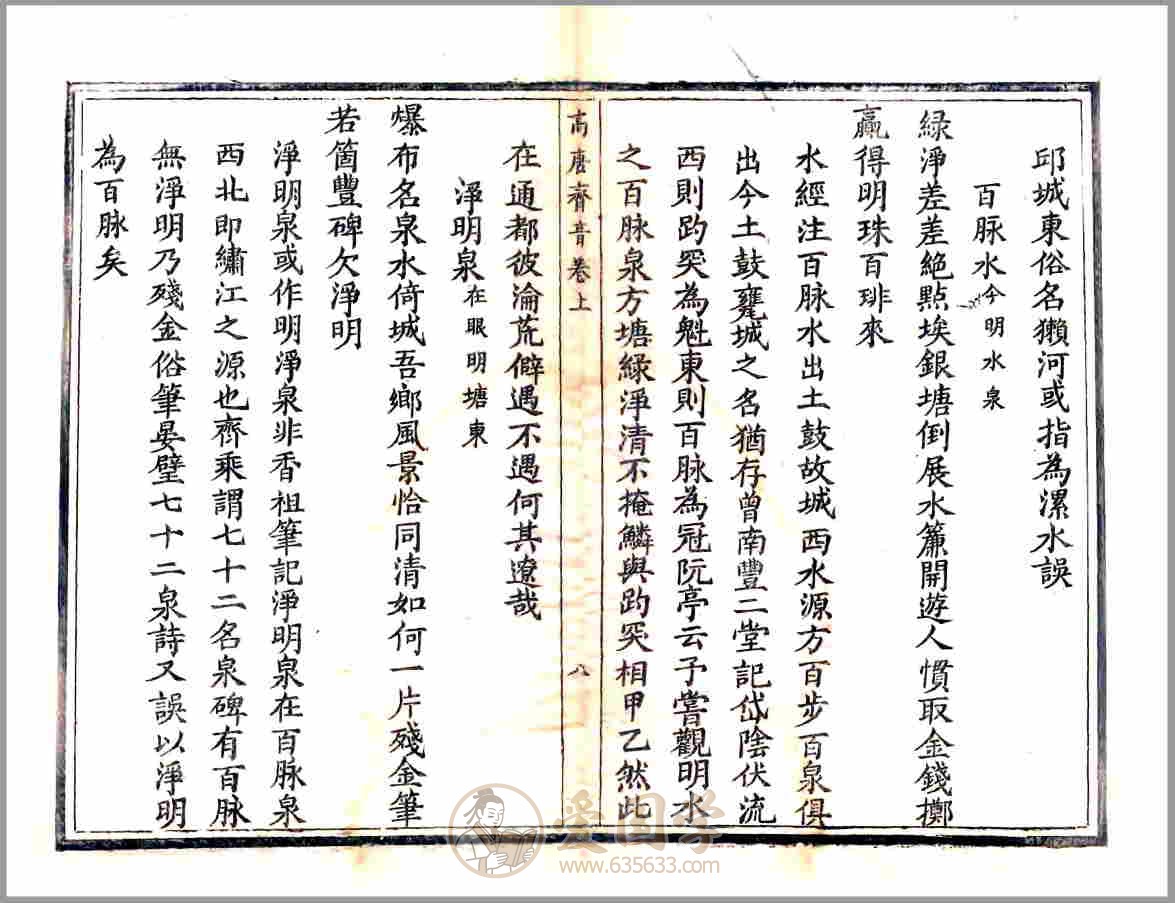 邱城東俗名獺河或指為漯水誤
百脉水今明水泉
緑淨差差絶點埃銀塘倒展水簾開遊人慣取金錢擲
贏得明珠百琲來
水經注百脉水出土鼓故城西水源方百步百泉俱
出今土鼓甕城之名猶存曾南豐二堂記岱陰伏流
西則趵突為魁東則百脉為冠阮亭云予嘗觀明水
之百脉泉方塘緑淨清不掩鱗與趵突相甲乙然此
高唐齊音卷上
八
在通都彼淪荒僻遇不遇何其遼哉
淨明泉在眼明塘東
爆布名泉水倚城吾鄉風景恰同清如何一片殘金筆
若箇豐碑欠淨明
淨明泉或作明淨泉非香祖筆記淨明泉在百脉泉
西北即繡江之源也齊乘謂七十二名泉碑有百脉
無淨明乃殘金俗筆晏璧七十二泉詩又誤以淨明
為百脉矣
爱国学
www.635633.com